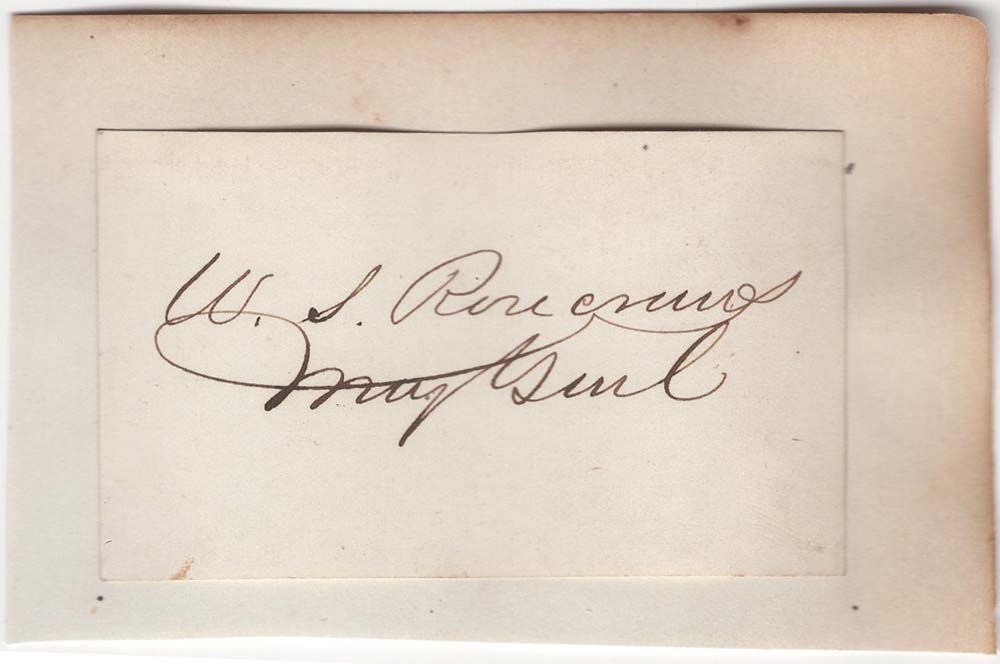 W. S. Rosecrans
Maj Genl